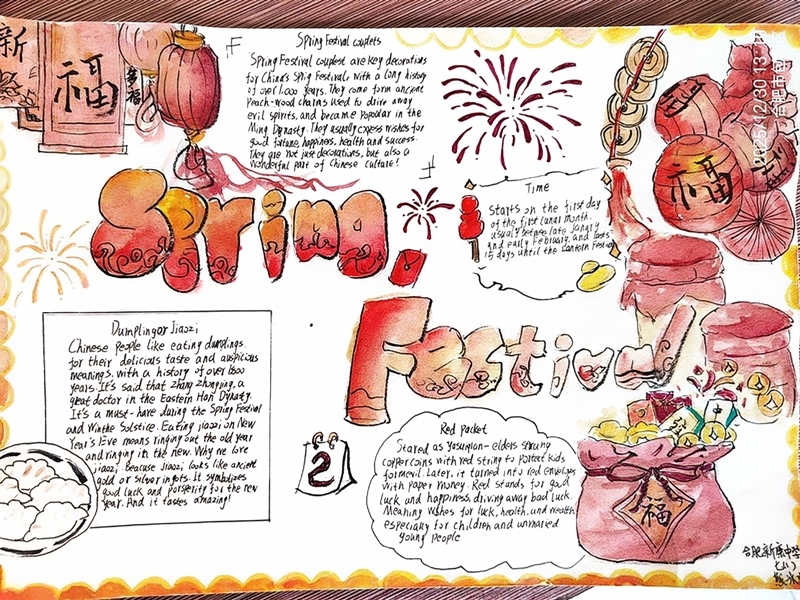 新
福
Spring Festival couplets
Spring Festival couplest are key decorations
for China's Spring Festival, with a long history
of over 1,000 years. They come form ancient
Peach-wood charms used to drive away
evil spirits, and became Popular in the
Ming Dynasty. They usually express wishes for
good fortune, happiness, health and success.
They are not just decorations, but also a
wonderful part of Chinese Culture!
福
Spring
Time
Starts on the first day
of the first lunar month.
usually
and early February, and lasts
15 days until the Lantern Festival
Festival
Dumplingor Jiaozi
Chinese People like eating dumplings
for their delicious taste and auspicious
meanings, with a history of over 1800
years. It's said that Zhang zhongjing, a
great doctor in the Eastern Han Dynasty.
It's a must-have during the Spring Festival
and Winthe Solstice. Eating jiaozi on New
Year's Eve means ringing out the old year
and ringing in the new. Why we love
jiaozi. Because Jiaozi, looks like ancient
gold or silver ingots. It symbolizes
good luck and porsperity for the new
year. And it tastes amazing!
2
Red Packet
Stared as Yasuiqian- elders strung
copper coins with red string to Portect kids
formevil. Later, it turned into red envelopes
with paper money. Red stands for good
luck and happiness, driving away bad luck.
Meaning wishes for luck, health, and wealth
especially for children and unmaried
young people
福